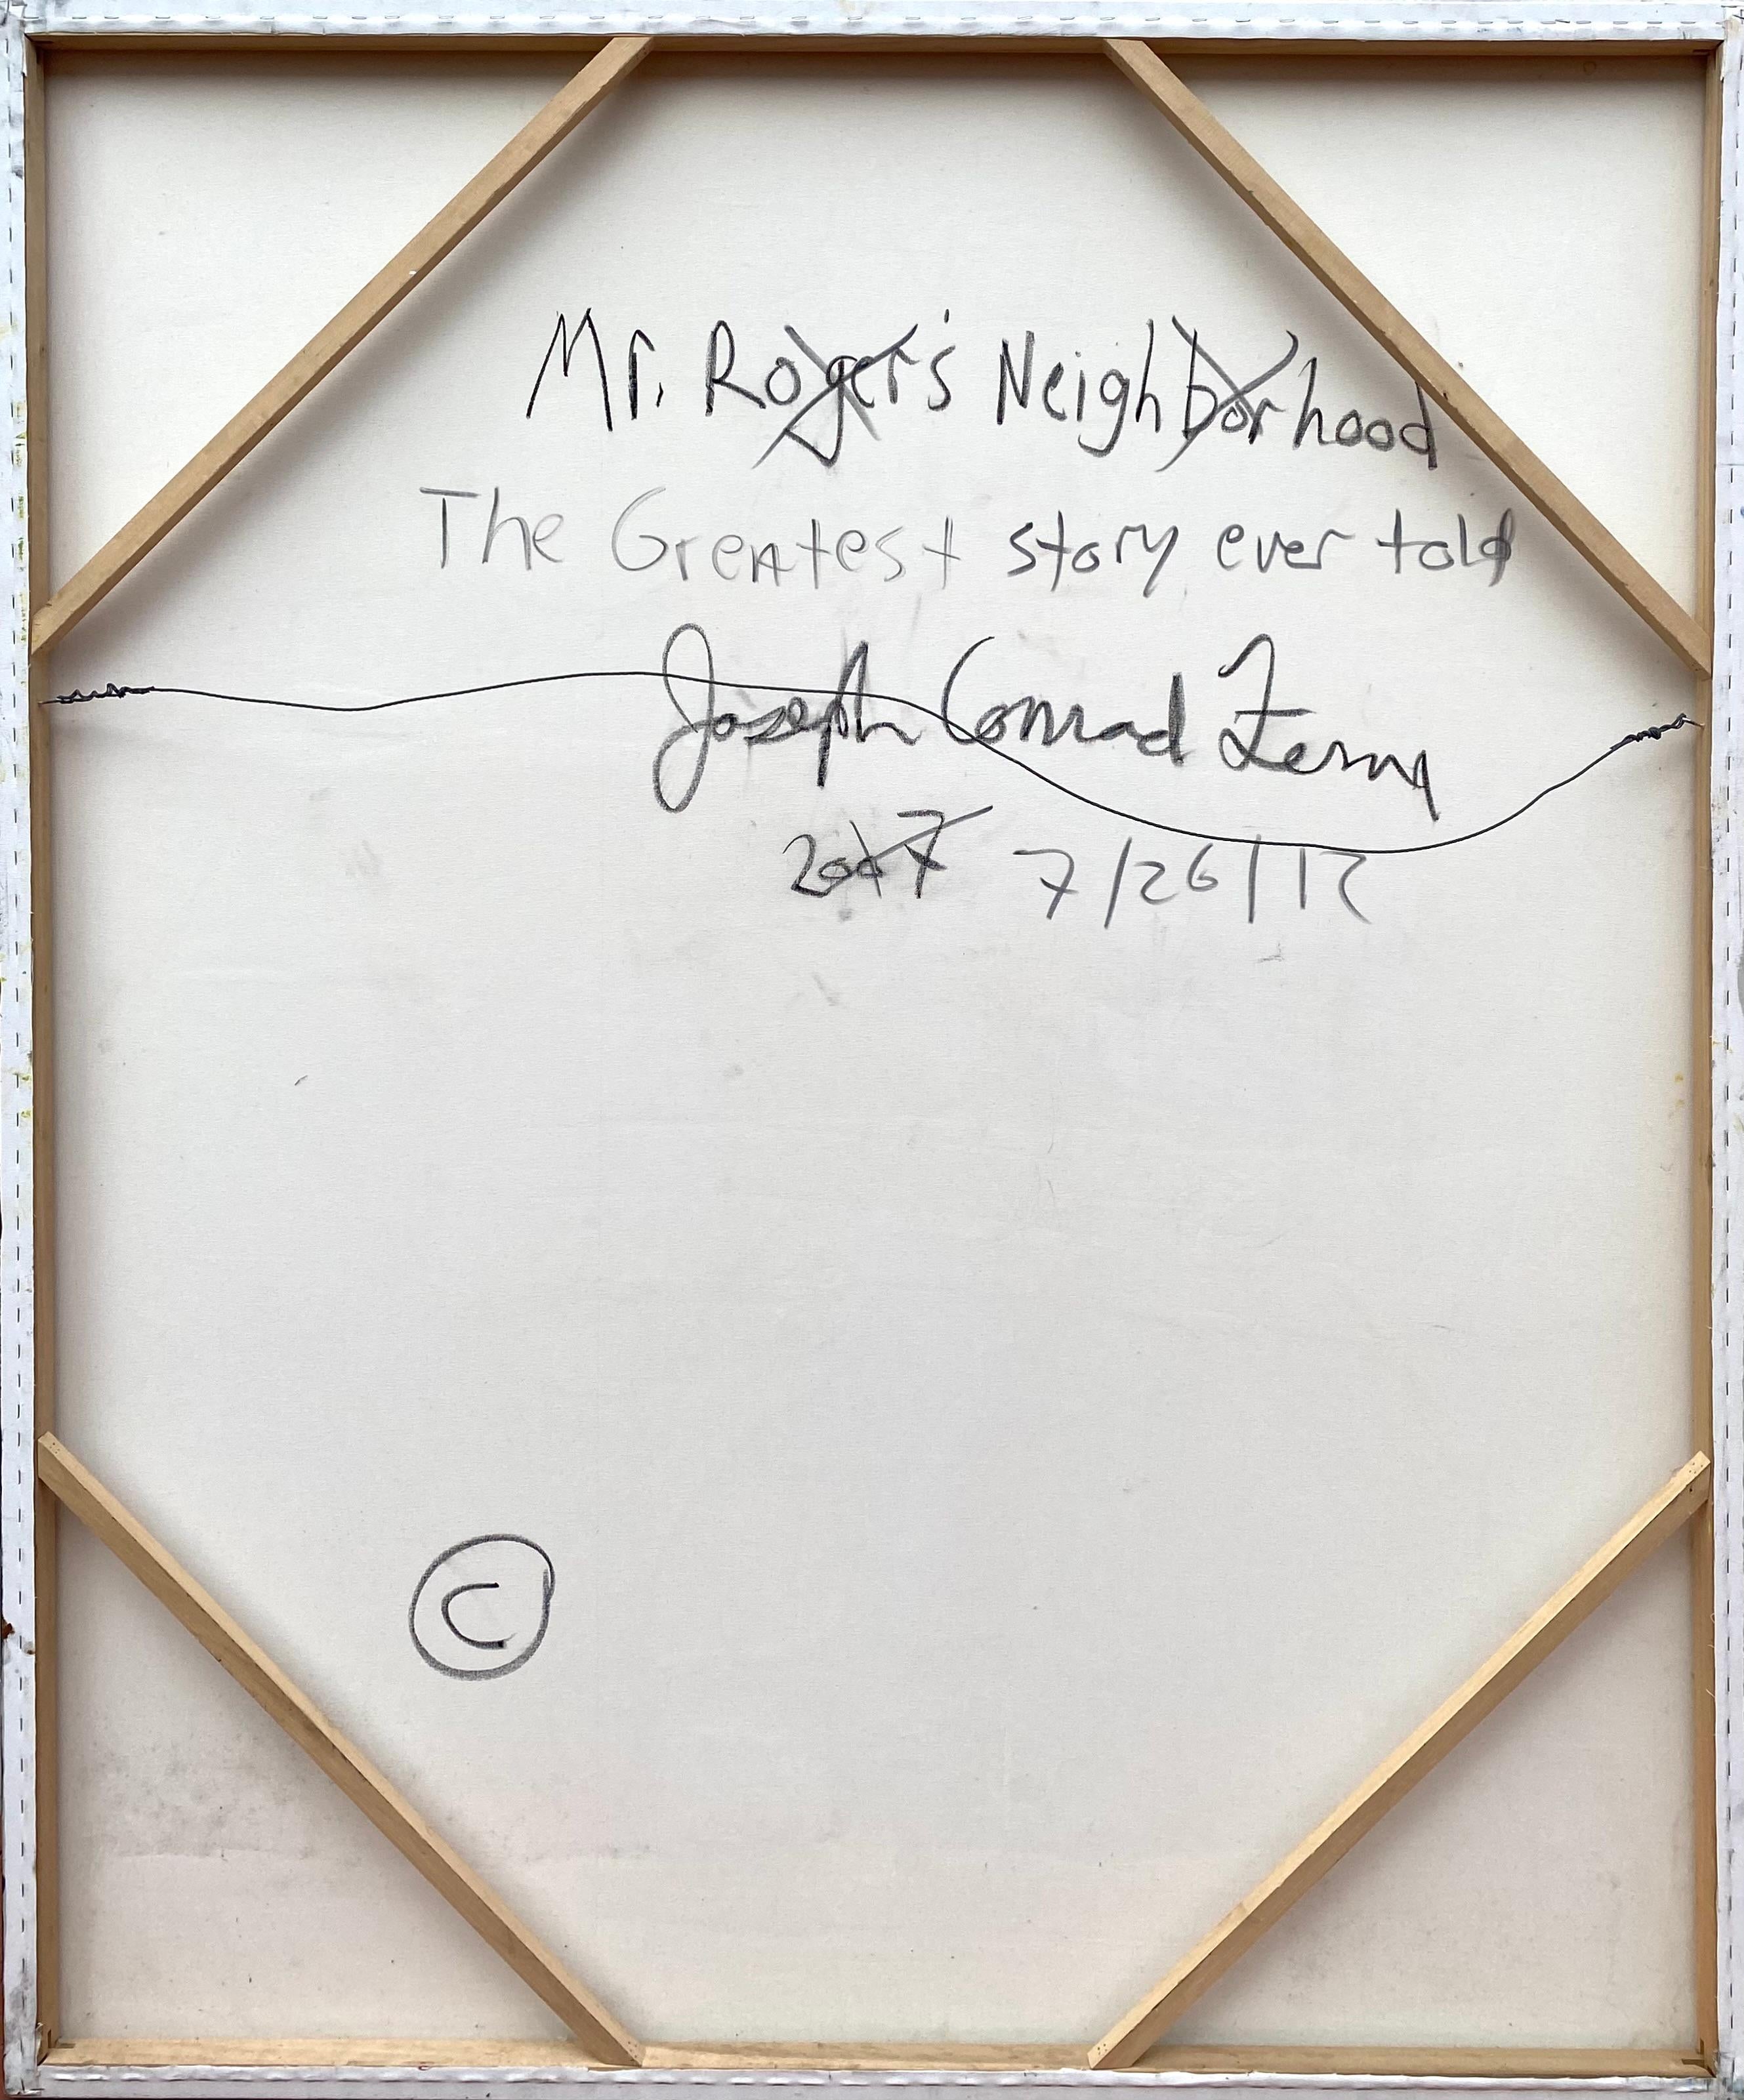 Mr. Roger's Neighborhood
The Greatest story ever told
Joseph Conrad Ferm
2017 7/26/17
©